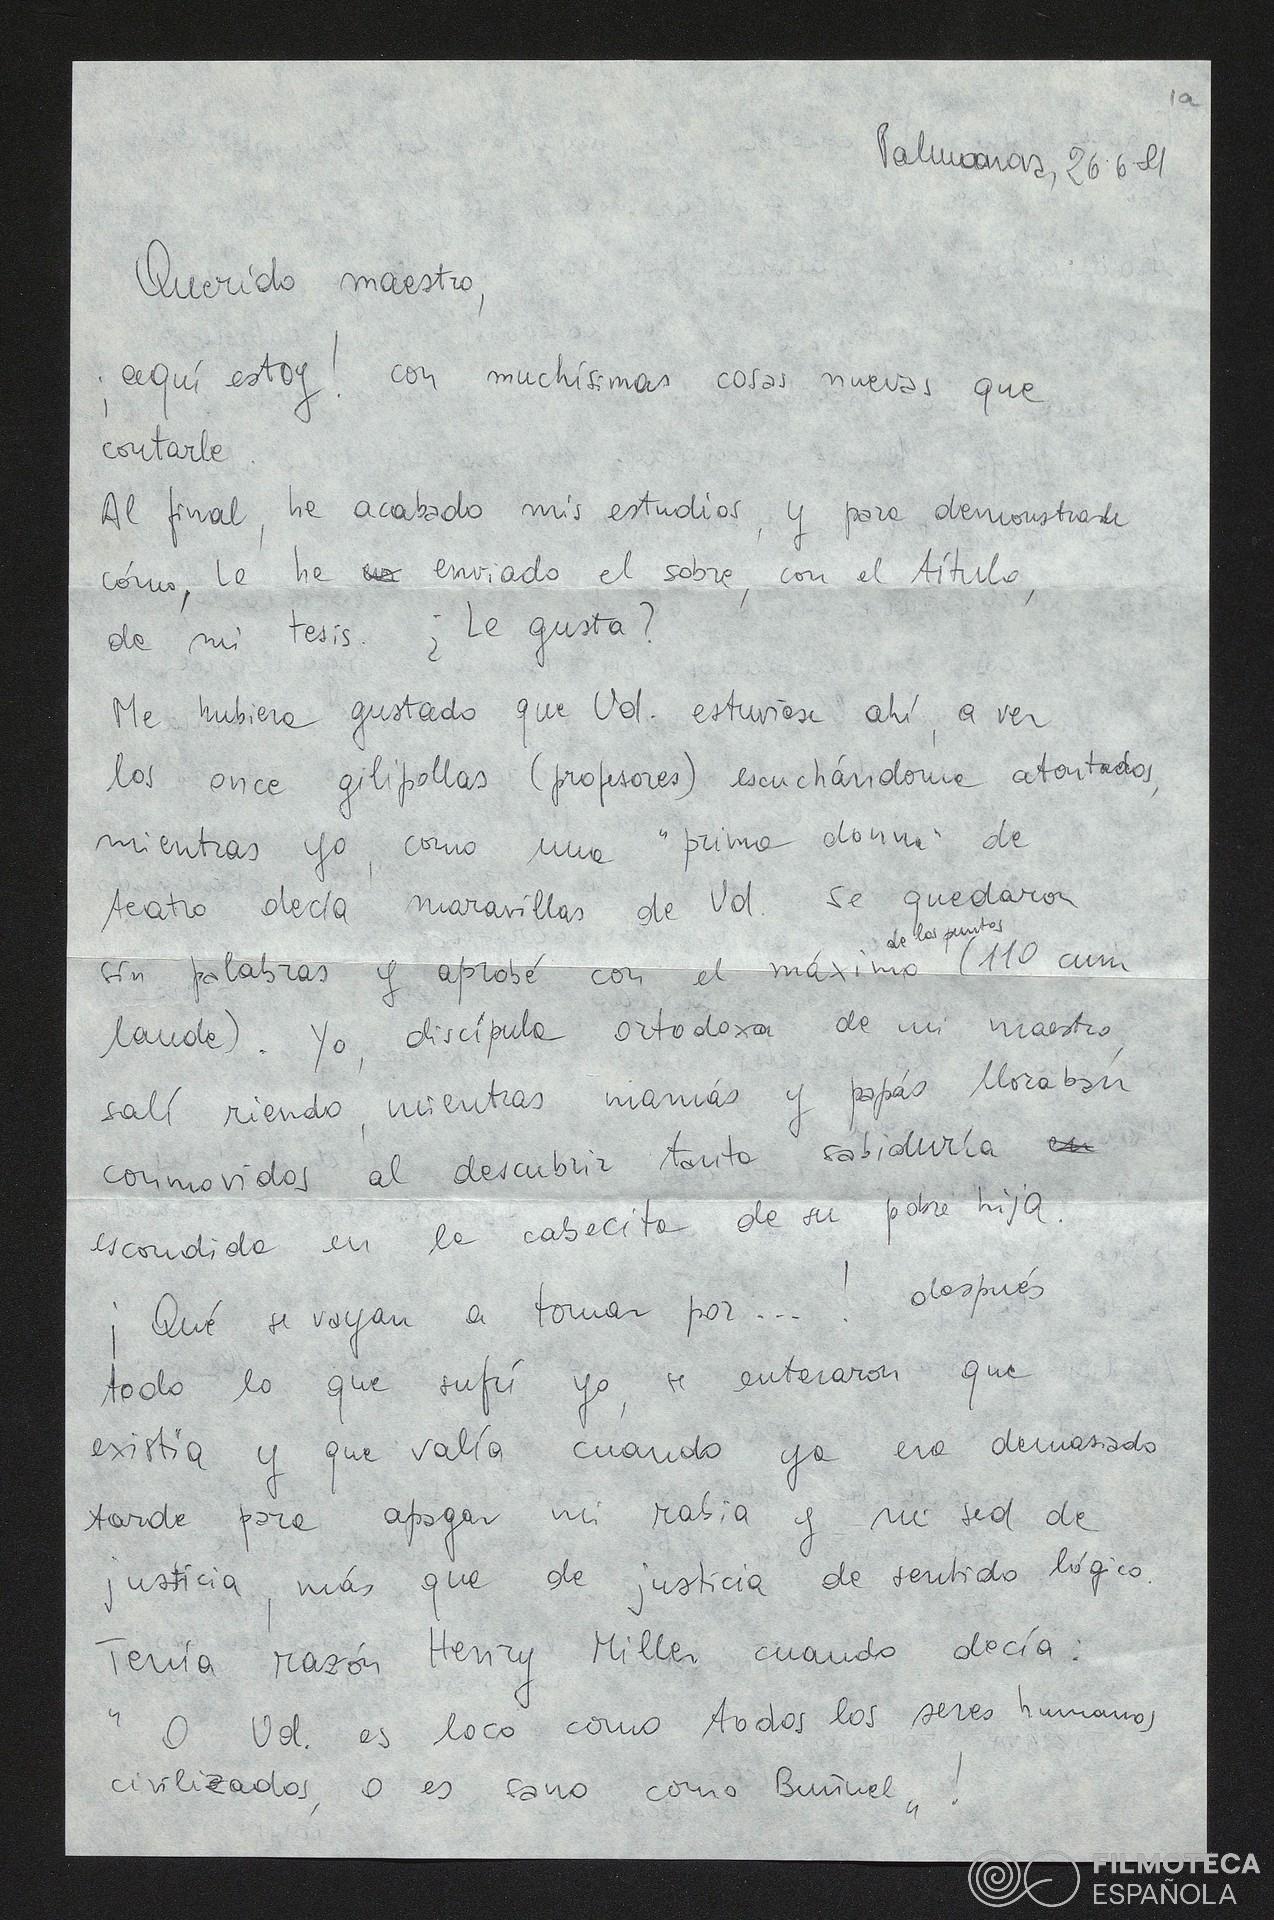 1a
Palmanova, 26·6·81
Querido maestro,
¡aquí estoy! con muchísimas cosas nuevas que
contarle.
Al final, he acabado mis estudios, y para demonstrarle
cómo, le he enviado el sobre, con el título,
de mi tesis. ¿Le gusta?
Me hubiera gustado que Ud. estuviese ahí, a ver
los once gilipollas (profesores) escuchándome atontados,
mientras yo, como una "prima donna" de
teatro decía maravillas de Ud. Se quedaron
de los puntos
sin palabras y aprobé con el máximo (110 cum
laude). Yo, discípula ortodoxa de mi maestro,
salí riendo, mientras mamás y papás lloraban
conmovidos al descubrir tanta sabiduría en
escondida en la cabecita de su pobre hija.
¡Qué se vayan a tomar por...! después
todo lo que sufrí yo, se enteraron que
existía y que valía cuando ya era demasiado
tarde para apagar mi rabia y mi sed de
justicia, más que de justicia de sentido lógico.
Tenía razón Henry Miller cuando decía:
"O Ud. es loco como todos los seres humanos
civilizados, o es sano como Buñuel"!
FILMOTECA
ESPAÑOLA